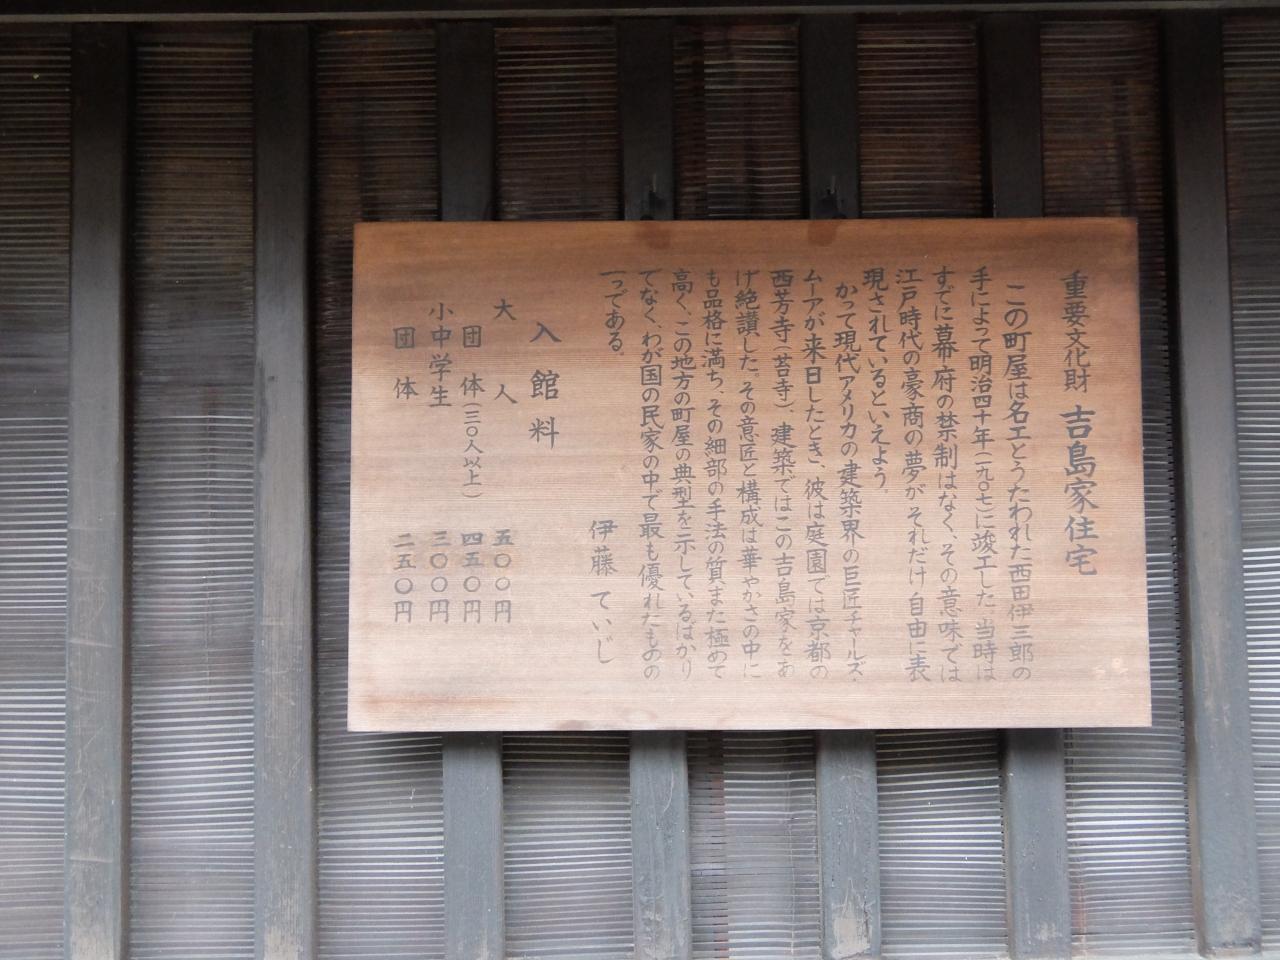 重要文化財 吉島家住宅
この町屋は名工とうたわれた西田伊三郎の
手によって明治四十年(一九〇七)に竣工した。当時は
すでに幕府の禁制はなく、その意味では
江戸時代の豪商の夢が それだけ 自由に表
現されているといえよう。
かって現代アメリカの建築界の巨匠チャールズ・
ムーアが来日したとき、彼は庭園では京都の
西芳寺(苔寺)、建築ではこの吉島家をあ
げ絶讃した。その意匠と構成は華やかさの中に
も品格に満ち、その細部の手法の質また極めて
高く、この地方の町屋の典型を示しているばかり
でなく、わが国の民家の中で最も優れたものの
一つである。
伊藤 ていじ
入館料
大人 五〇〇円
団体(三〇人以上) 四五〇円
小中学生 三〇〇円
団体 二五〇円